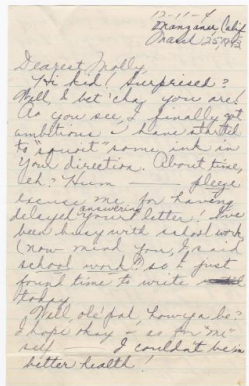 12-11-
Manzanar, Calif
March 25, 1943
Dearest Molly,
Hi kid! Surprised?
Well, I bet'chay you are!
As you see, I finally got
ambitious & have started
to "squirt" some ink in
your direction. About time,
eh? Hum — pleeze
excuse me for having
delayed answering your letter! I've
been busy with school work,
(now mind you, I said
school work)? so I just
found time to write
today.
Well ole' pal how ya be?
I hope okay — as for "mi"
self — I couldn't be in
better health!